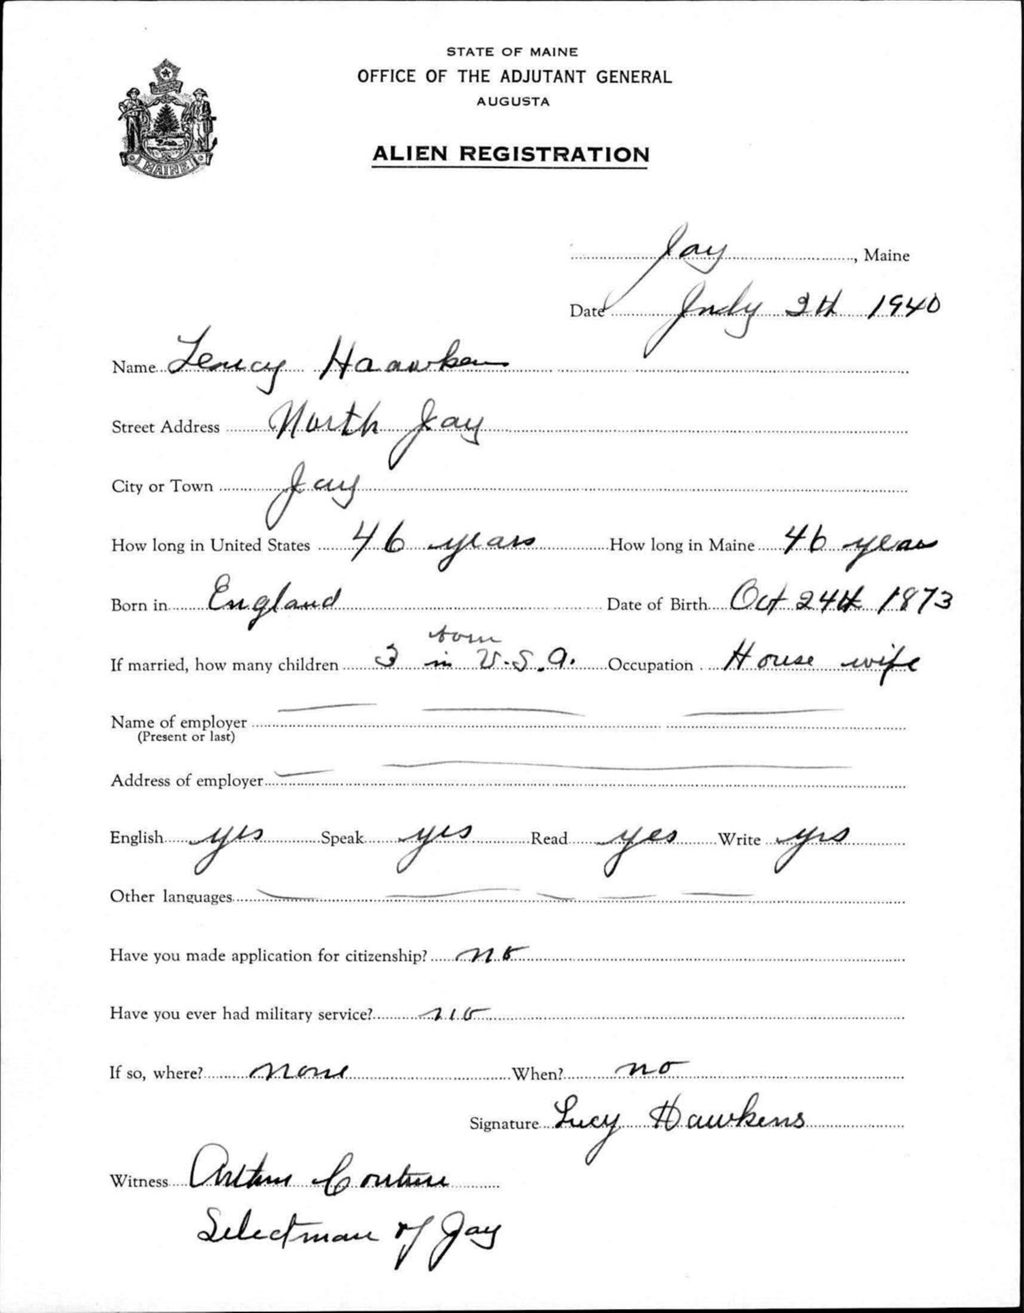 STATE OF MAINE
OFFICE OF THE ADJUTANT GENERAL
AUGUSTA
ALIEN REGISTRATION
MAINE
Jay, Maine
Date July 2th 1940
Name Leucy Haawken
Street Address North Jay
City or Town Jay
How long in United States 46 years How long in Maine 46 years
Born in England Date of Birth Oct 24th 1873
If married, how many children 3 born in U.S.A. Occupation House wife
Name of employer
(Present or last)
Address of employer
English yes Speak yes Read yes Write yes
Other languages
Have you made application for citizenship? no
Have you ever had military service? no
If so, where? none When? no
Signature Lucy Hawkens
Witness Arthur Couture
Selectman of Jay